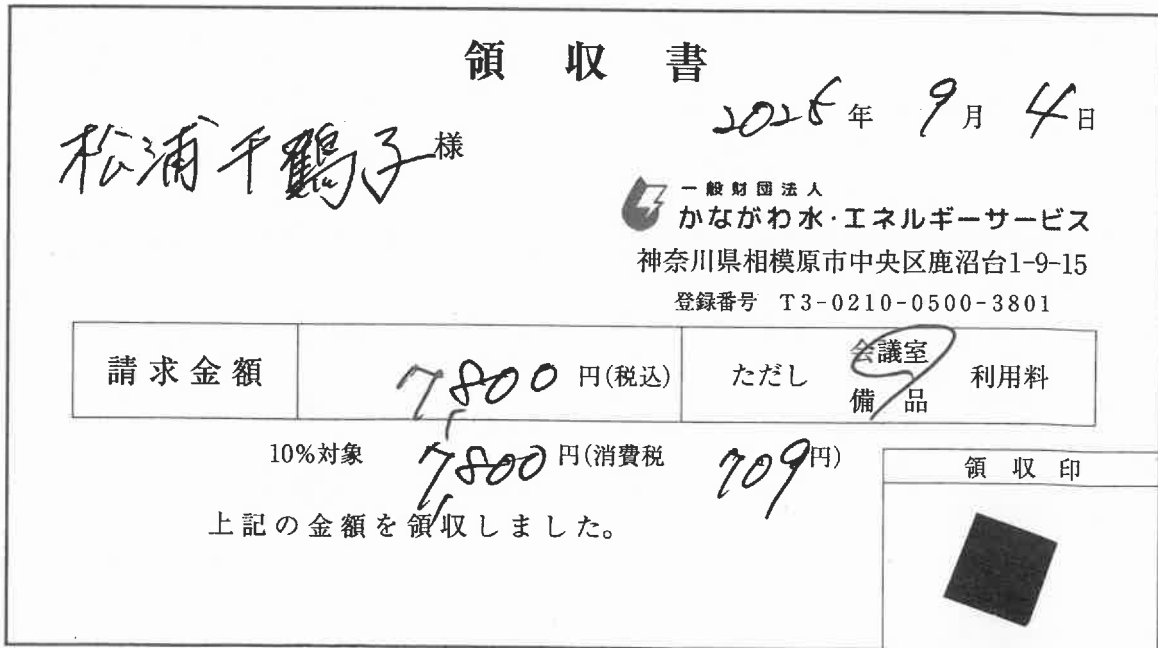 領収書
2025年 9月 4日
松浦千鶴子様
一般財団法人
かながわ水・エネルギーサービス
神奈川県相模原市中央区鹿沼台1-9-15
登録番号 T3-0210-0500-3801
請求金額 7,800 円(税込) ただし 会議室 備品 利用料
10%対象 7,800 円(消費税 709円)
領収印
上記の金額を領収しました。